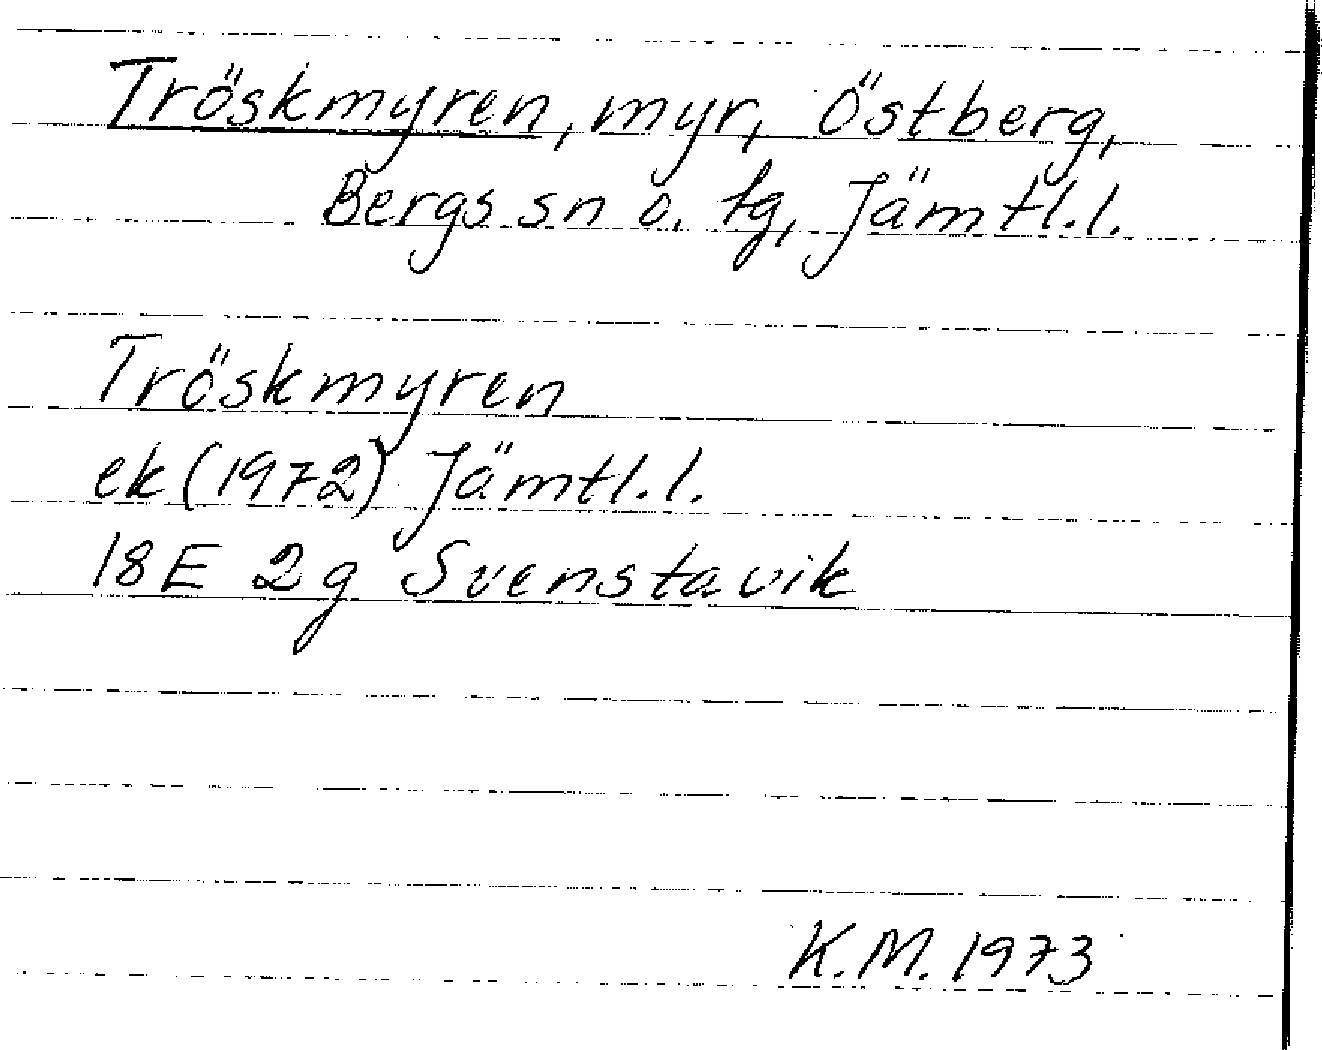 Tröskmyren, myr, Östberg,
Bergs sn o. tg, Jämtl.l.
Tröskmyren
ek (1972) Jämtl.l.
18E 2g Svenstavik
K.M. 1973